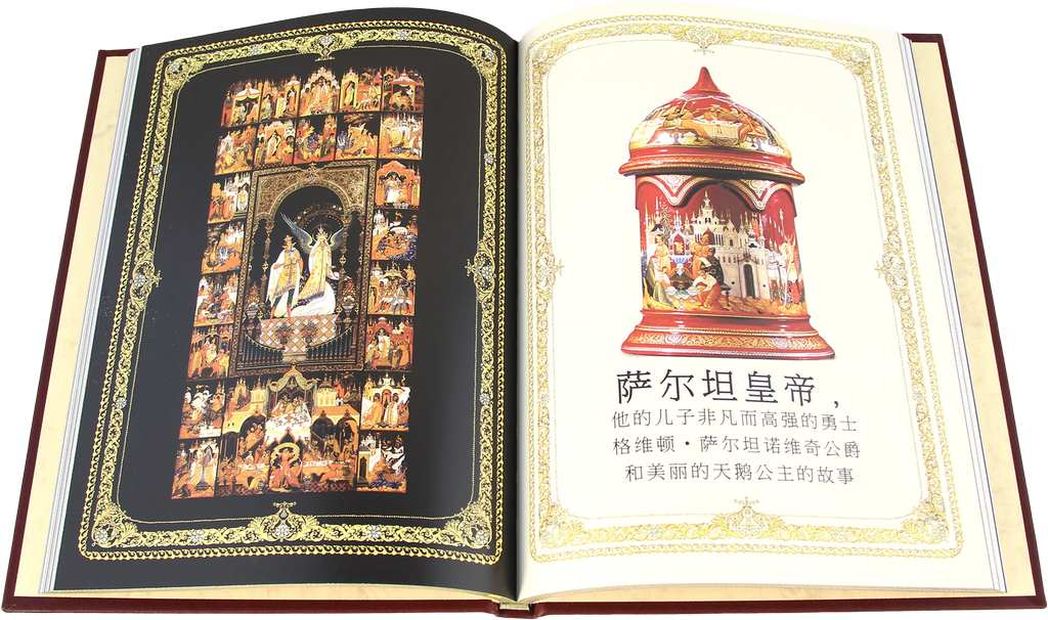 萨尔坦皇帝，
他的儿子非凡而高强的勇士
格维顿·萨尔坦诺维奇公爵
和美丽的天鹅公主的故事